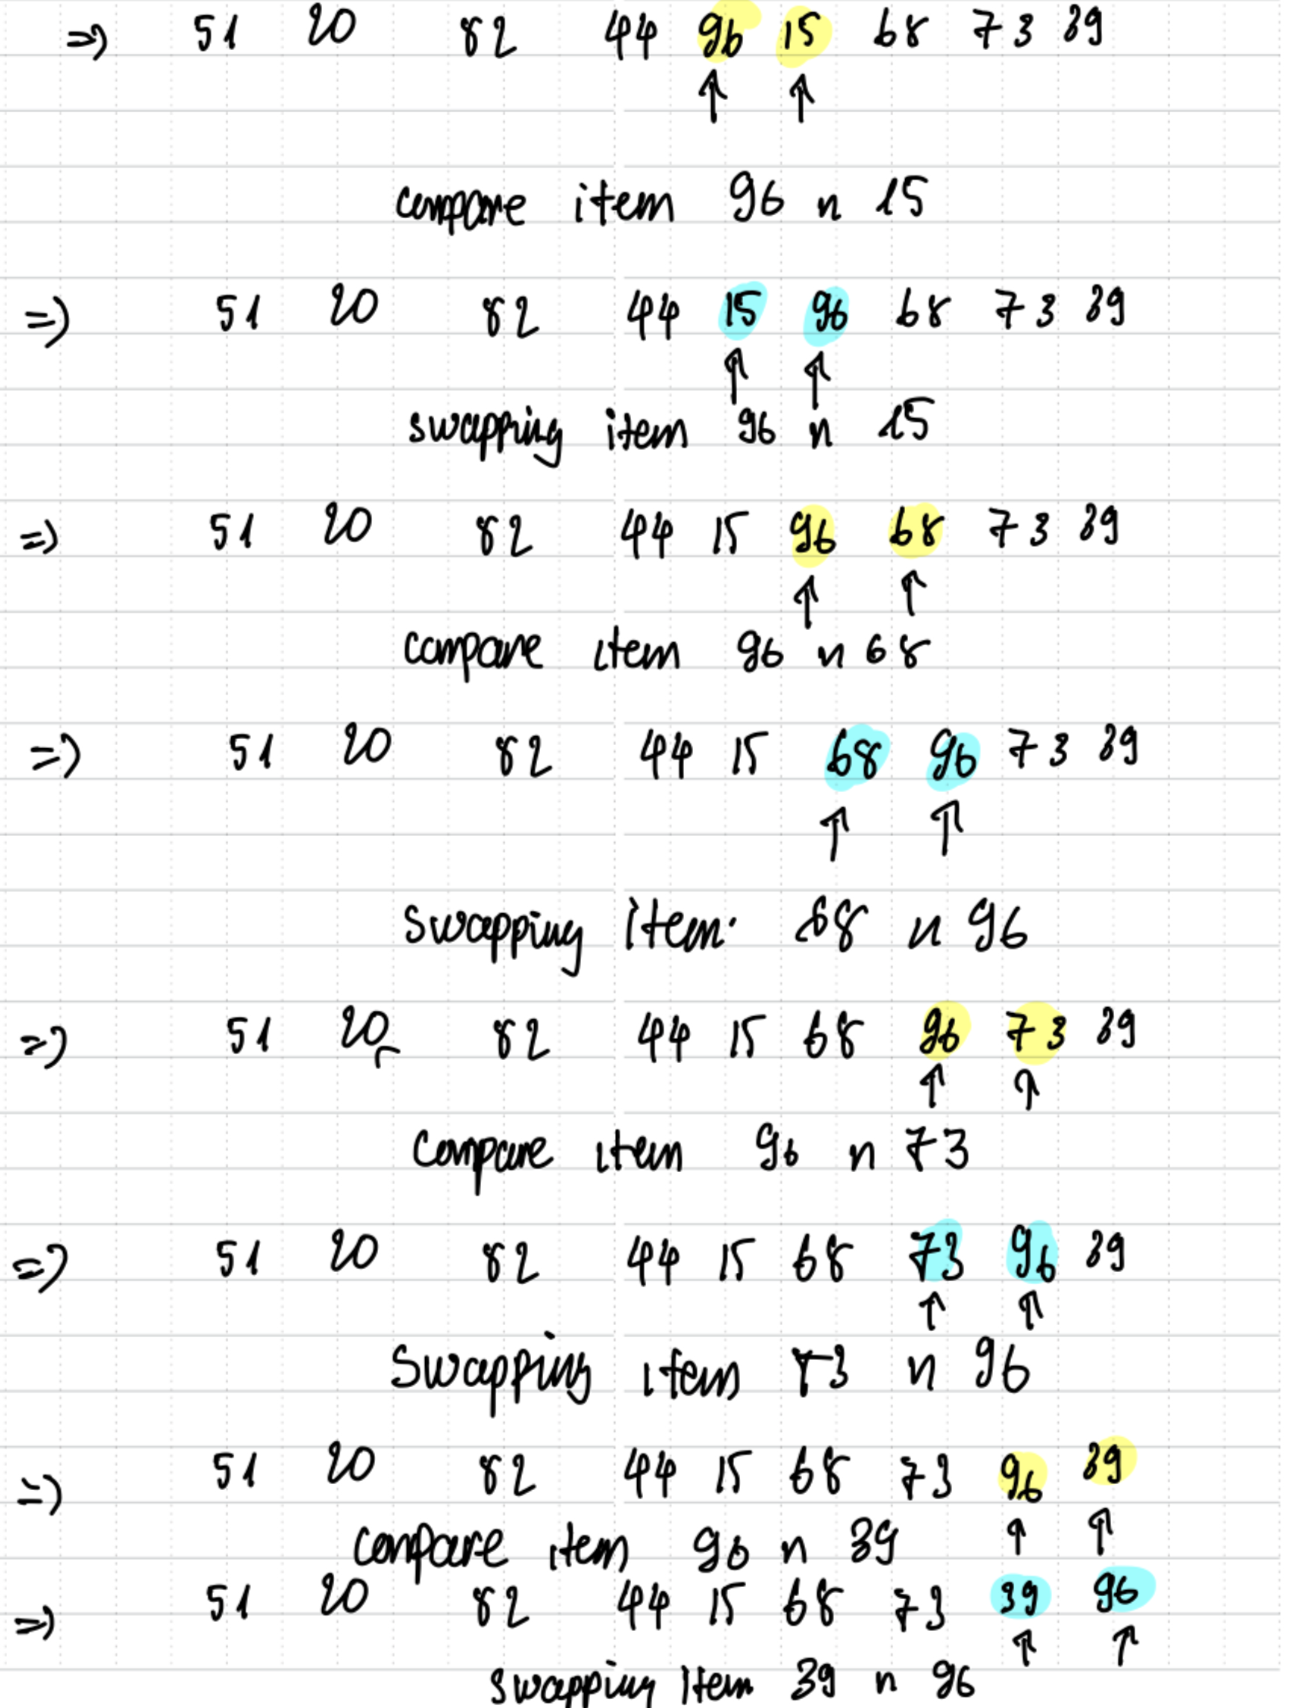 => 51 20 82 44 96 15 68 73 39
↑ ↑
compare item 96 n 15
=> 51 20 82 44 15 96 68 73 39
↑ ↑
swapping item 96 n 15
=> 51 20 82 44 15 96 68 73 39
↑ ↑
compare item 96 n 68
=> 51 20 82 44 15 68 96 73 39
↑ ↑
Swapping item. 68 n 96
=> 51 20 82 44 15 68 96 73 39
↑ ↑
Compare item 96 n 73
=> 51 20 82 44 15 68 73 96 39
↑ ↑
Swapping item 73 n 96
=> 51 20 82 44 15 68 73 96 39
↑ ↑
Compare item 96 n 39
=> 51 20 82 44 15 68 73 39 96
↑ ↑
swapping item 39 n 96